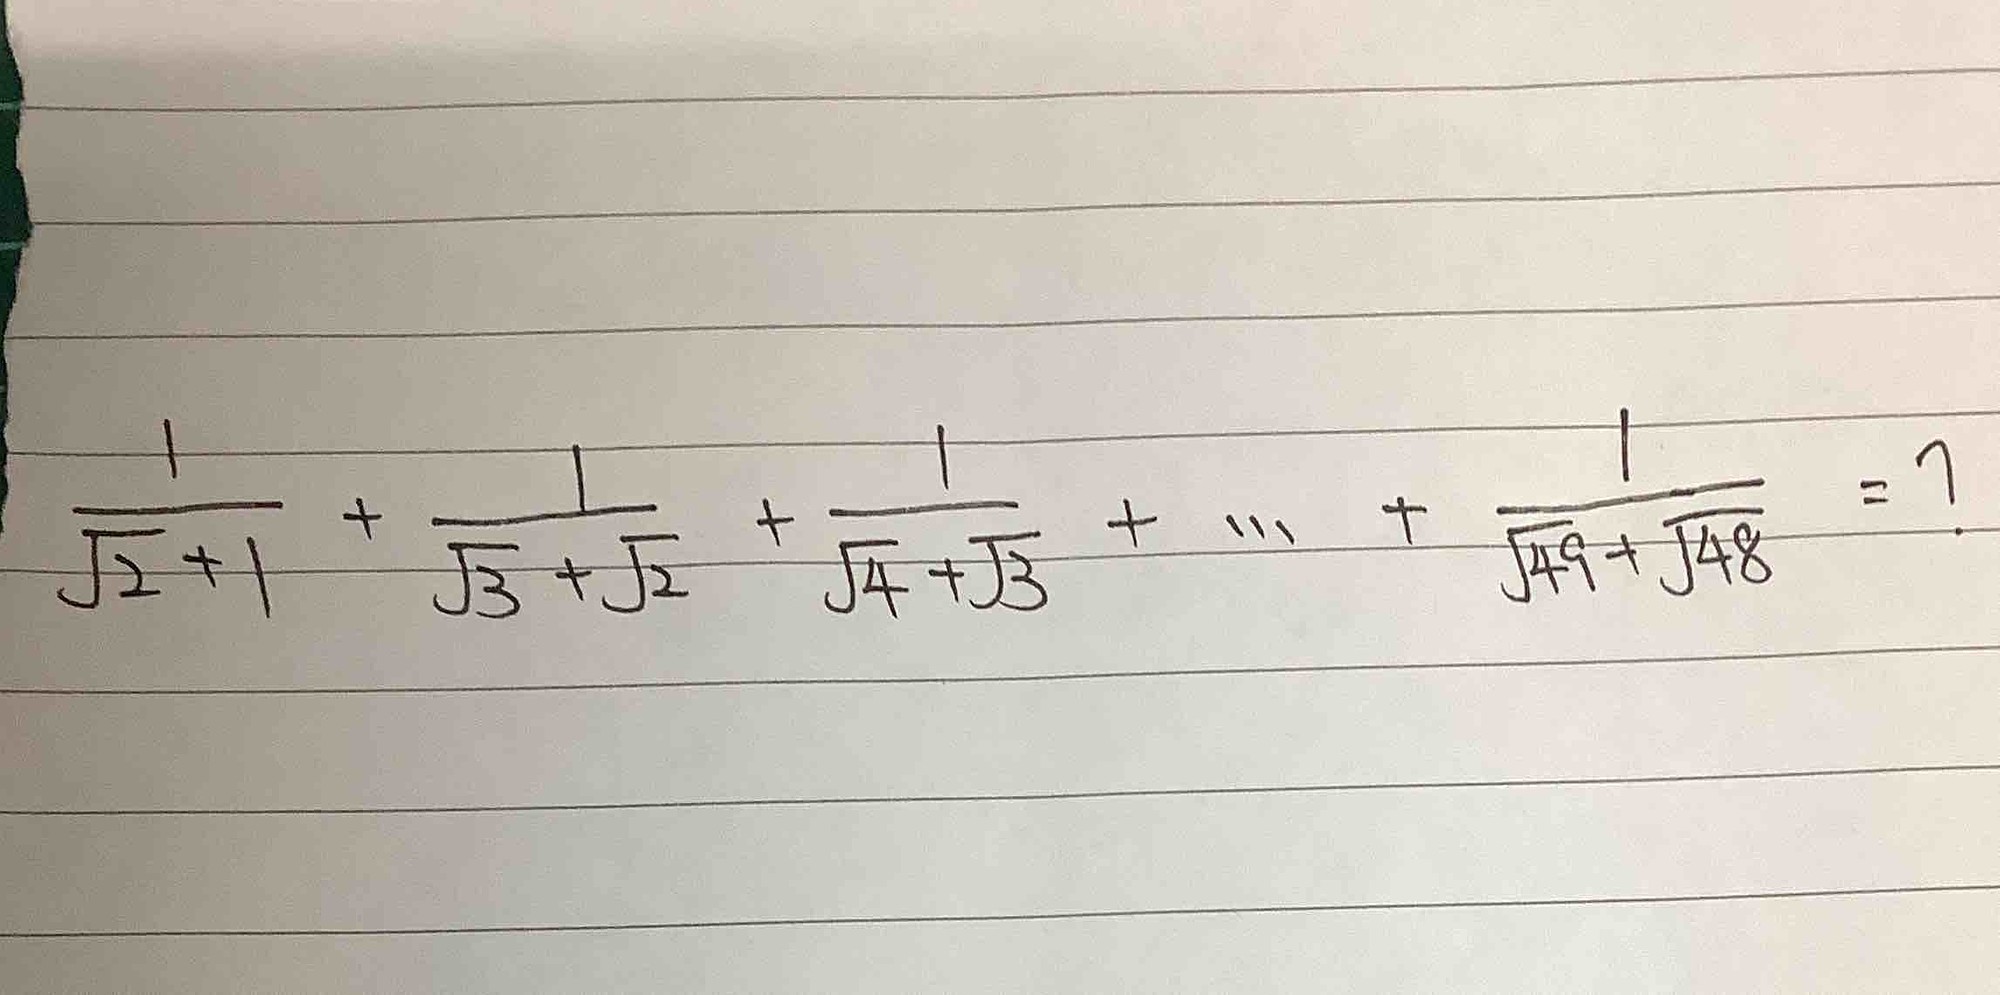 1/(√2+1) + 1/(√3+√2) + 1/(√4+√3) + ... + 1/(√49+√48) = ?